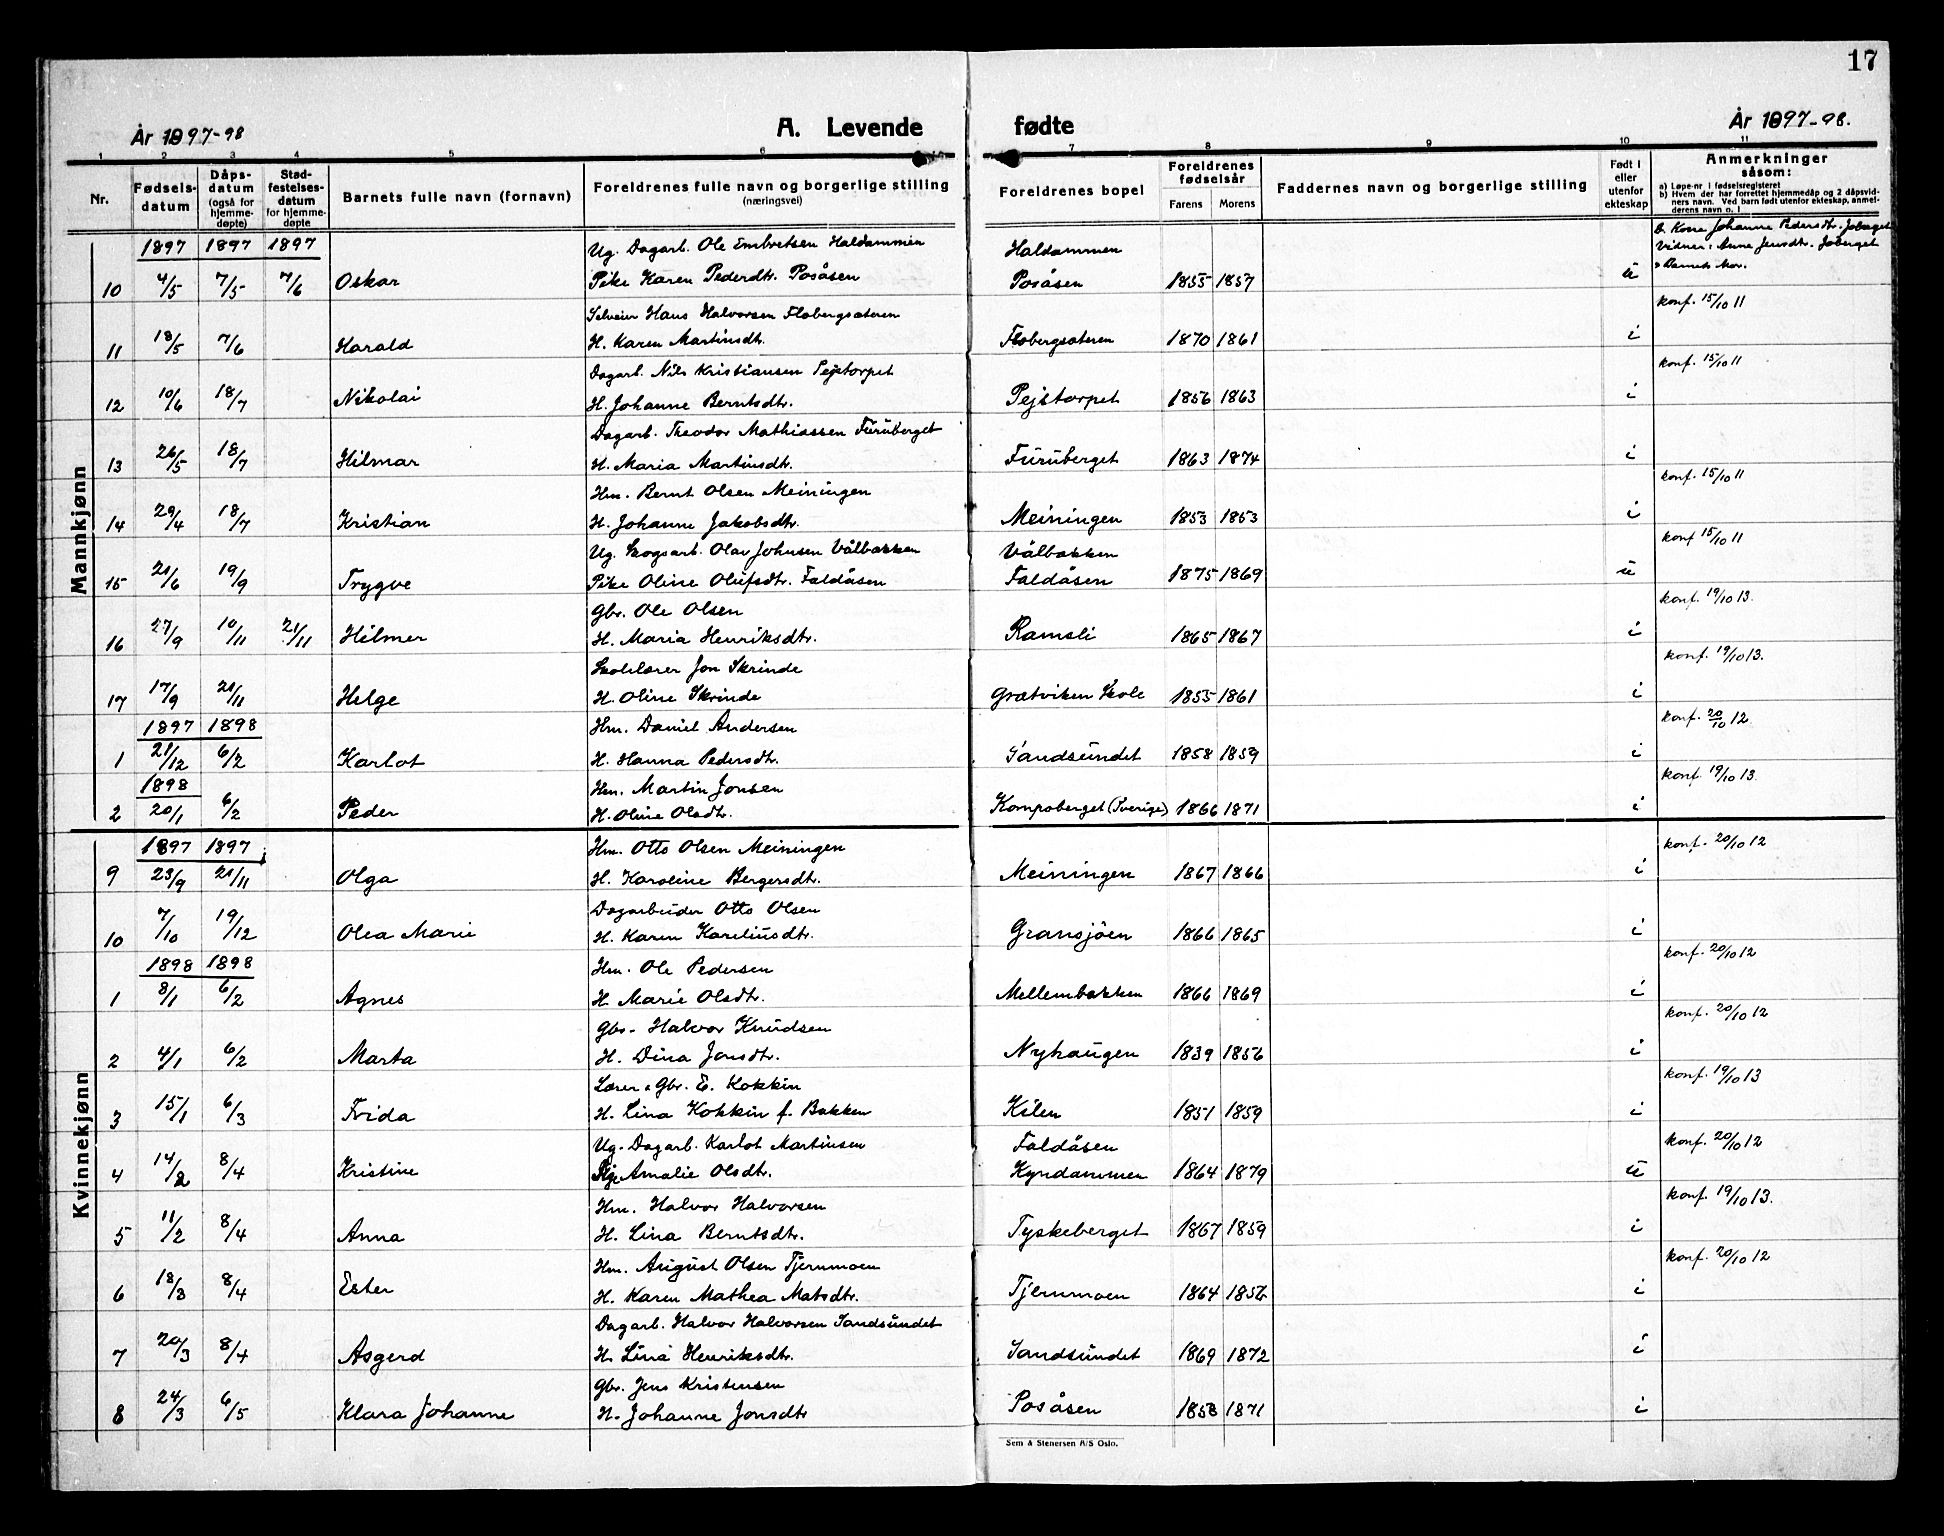 17
År 1897-98
A. Levende
fødte
År 1897-98.
1 2 3 4 5 6 7 8 9 10 11
Nr.
Fødsels-datum
Dåps-datum (også for hjemme-døpte)
Stad-festelses-datum for hjemme-døpte
Barnets fulle navn (fornavn)
Foreldrenes fulle navn og borgerlige stilling (næringsvei)
Foreldrenes bopel
Foreldrenes fødselsår
Farens Morens
Faddernes navn og borgerlige stilling
Født i eller utenfor ekteskap
Anmerkninger såsom:
a) Løpe-nr i fødselsregisteret
b) Hvem der har forrettet hjemmedåp og 2 dåpsvid-
ners navn. Ved barn født utenfor ekteskap, anmel-
derens navn o. l
Mannkjønn
1897 1897 1897 Ug. Dagarb. Ole Embretsen Haldammen Haldammen b. Kone Johanne Pedersdt. Joberget
Vidner: Anne Jensdt. Joberget
10 4/5 7/5 7/6 Oskar Pike Karen Pederdtr. Posåsen Posåsen 1855 1857 u " Barnets Mor.
Selveier Hans Halvorsen Flobergsæteren konf. 15/10 11
11 18/5 7/6 Harald H. Karen Martinsdtr. Flobergsæteren 1870 1861 i
Dagarb. Nils Kristiansen Pejstorpet konf. 15/10 11
12 10/6 18/7 Nikolai H. Johanne Berntsdtr. Pejstorpet 1856 1863 i
Dagarb. Theodor Mathiassen Furuberget
13 26/5 18/7 Hilmar H. Maria Martinsdtr. Furuberget 1863 1874 i
Hm. Bernt Olsen Meiningen konf. 15/10 11
14 29/4 18/7 Kristian H. Johanne Jakobsdtr. Meiningen 1853 1853 i
Ug. Skogsarb. Olav Johnsen Vålbakken Vålbakken konf 15/10 11
15 21/6 19/9 Trygve Pike Oline Olufsdtr. Faldåsen Faldåsen 1875 1869 u
Gbr. Ole Olsen konf. 19/10 13.
16 27/9 10/11 21/11 Hilmer H. Maria Henriksdtr. Ramsli 1865 1867 i
Skolelærer Jon Skrinde konf. 19/10 13.
17 17/9 21/11 Helge H. Oline Skrinde Grætviken Skole 1855 1861 i
1897 1898 Hm. Daniel Andersen konf. 20/10 12
1 21/12 6/2 Karlot H. Hanna Pedersdtr. Sandsundet 1858 1859 i
1898 Hm. Martin Jonsen konf. 19/10 13.
2 20/1 6/2 Peder H. Oline Olsdtr. Kompoberget (Sverige) 1866 1871 i
Kvinnekjønn
1897 1897 Hm. Otto Olsen Meiningen konf. 20/10 12
9 23/9 21/11 Olga H. Karoline Bergersdtr. Meiningen 1867 1866 i
Dagarbeider Otto Olsen
10 7/10 19/12 Olea Marie H. Karen Kareliusdtr. Gransjöen 1866 1865 i
1898 1898 Hm. Ole Pedersen konf. 20/10 12
1 8/1 6/2 Agnes H. Marie Olsdtr. Mellembakken 1866 1869 i
Gbr. Halvor Knudsen konf. 20/10 12
2 4/1 6/2 Marta H. Dina Jonsdtr. Nyhaugen 1839 1856 i
Lærer & Gbr. E. Kokkin konf. 19/10 13
3 15/1 6/3 Frida H. Lina Kokkin f. Bakken Kilen 1851 1859 i
Ug. Dagarb. Karlot Martinsen Faldåsen konf. 20/10 12
4 14/2 8/4 Kristine Pige Amalie Olsdtr. Kyndammen 1864 1879 u
Hm. Halvor Halvorsen konf. 19/10 13.
5 11/2 8/4 Anna H. Lina Berntsdtr. Tyskeberget 1867 1859 i
Hm. August Olsen Tjernmoen konf. 20/10 12
6 18/3 8/4 Ester H. Karen Mathea Matsdtr. Tjernmoen 1864 1856 i
Dagarb. Halvor Halvorsen Sandsundet
7 20/3 8/4 Asgerd H. Lina Henriksdtr. Sandsundet 1869 1872 i
Gbr. Jens Kristensen
8 24/3 6/5 Klara Johanne H. Johanne Jonsdtr Posåsen 1858 1871 i
Sem & Stenersen A/S Oslo.